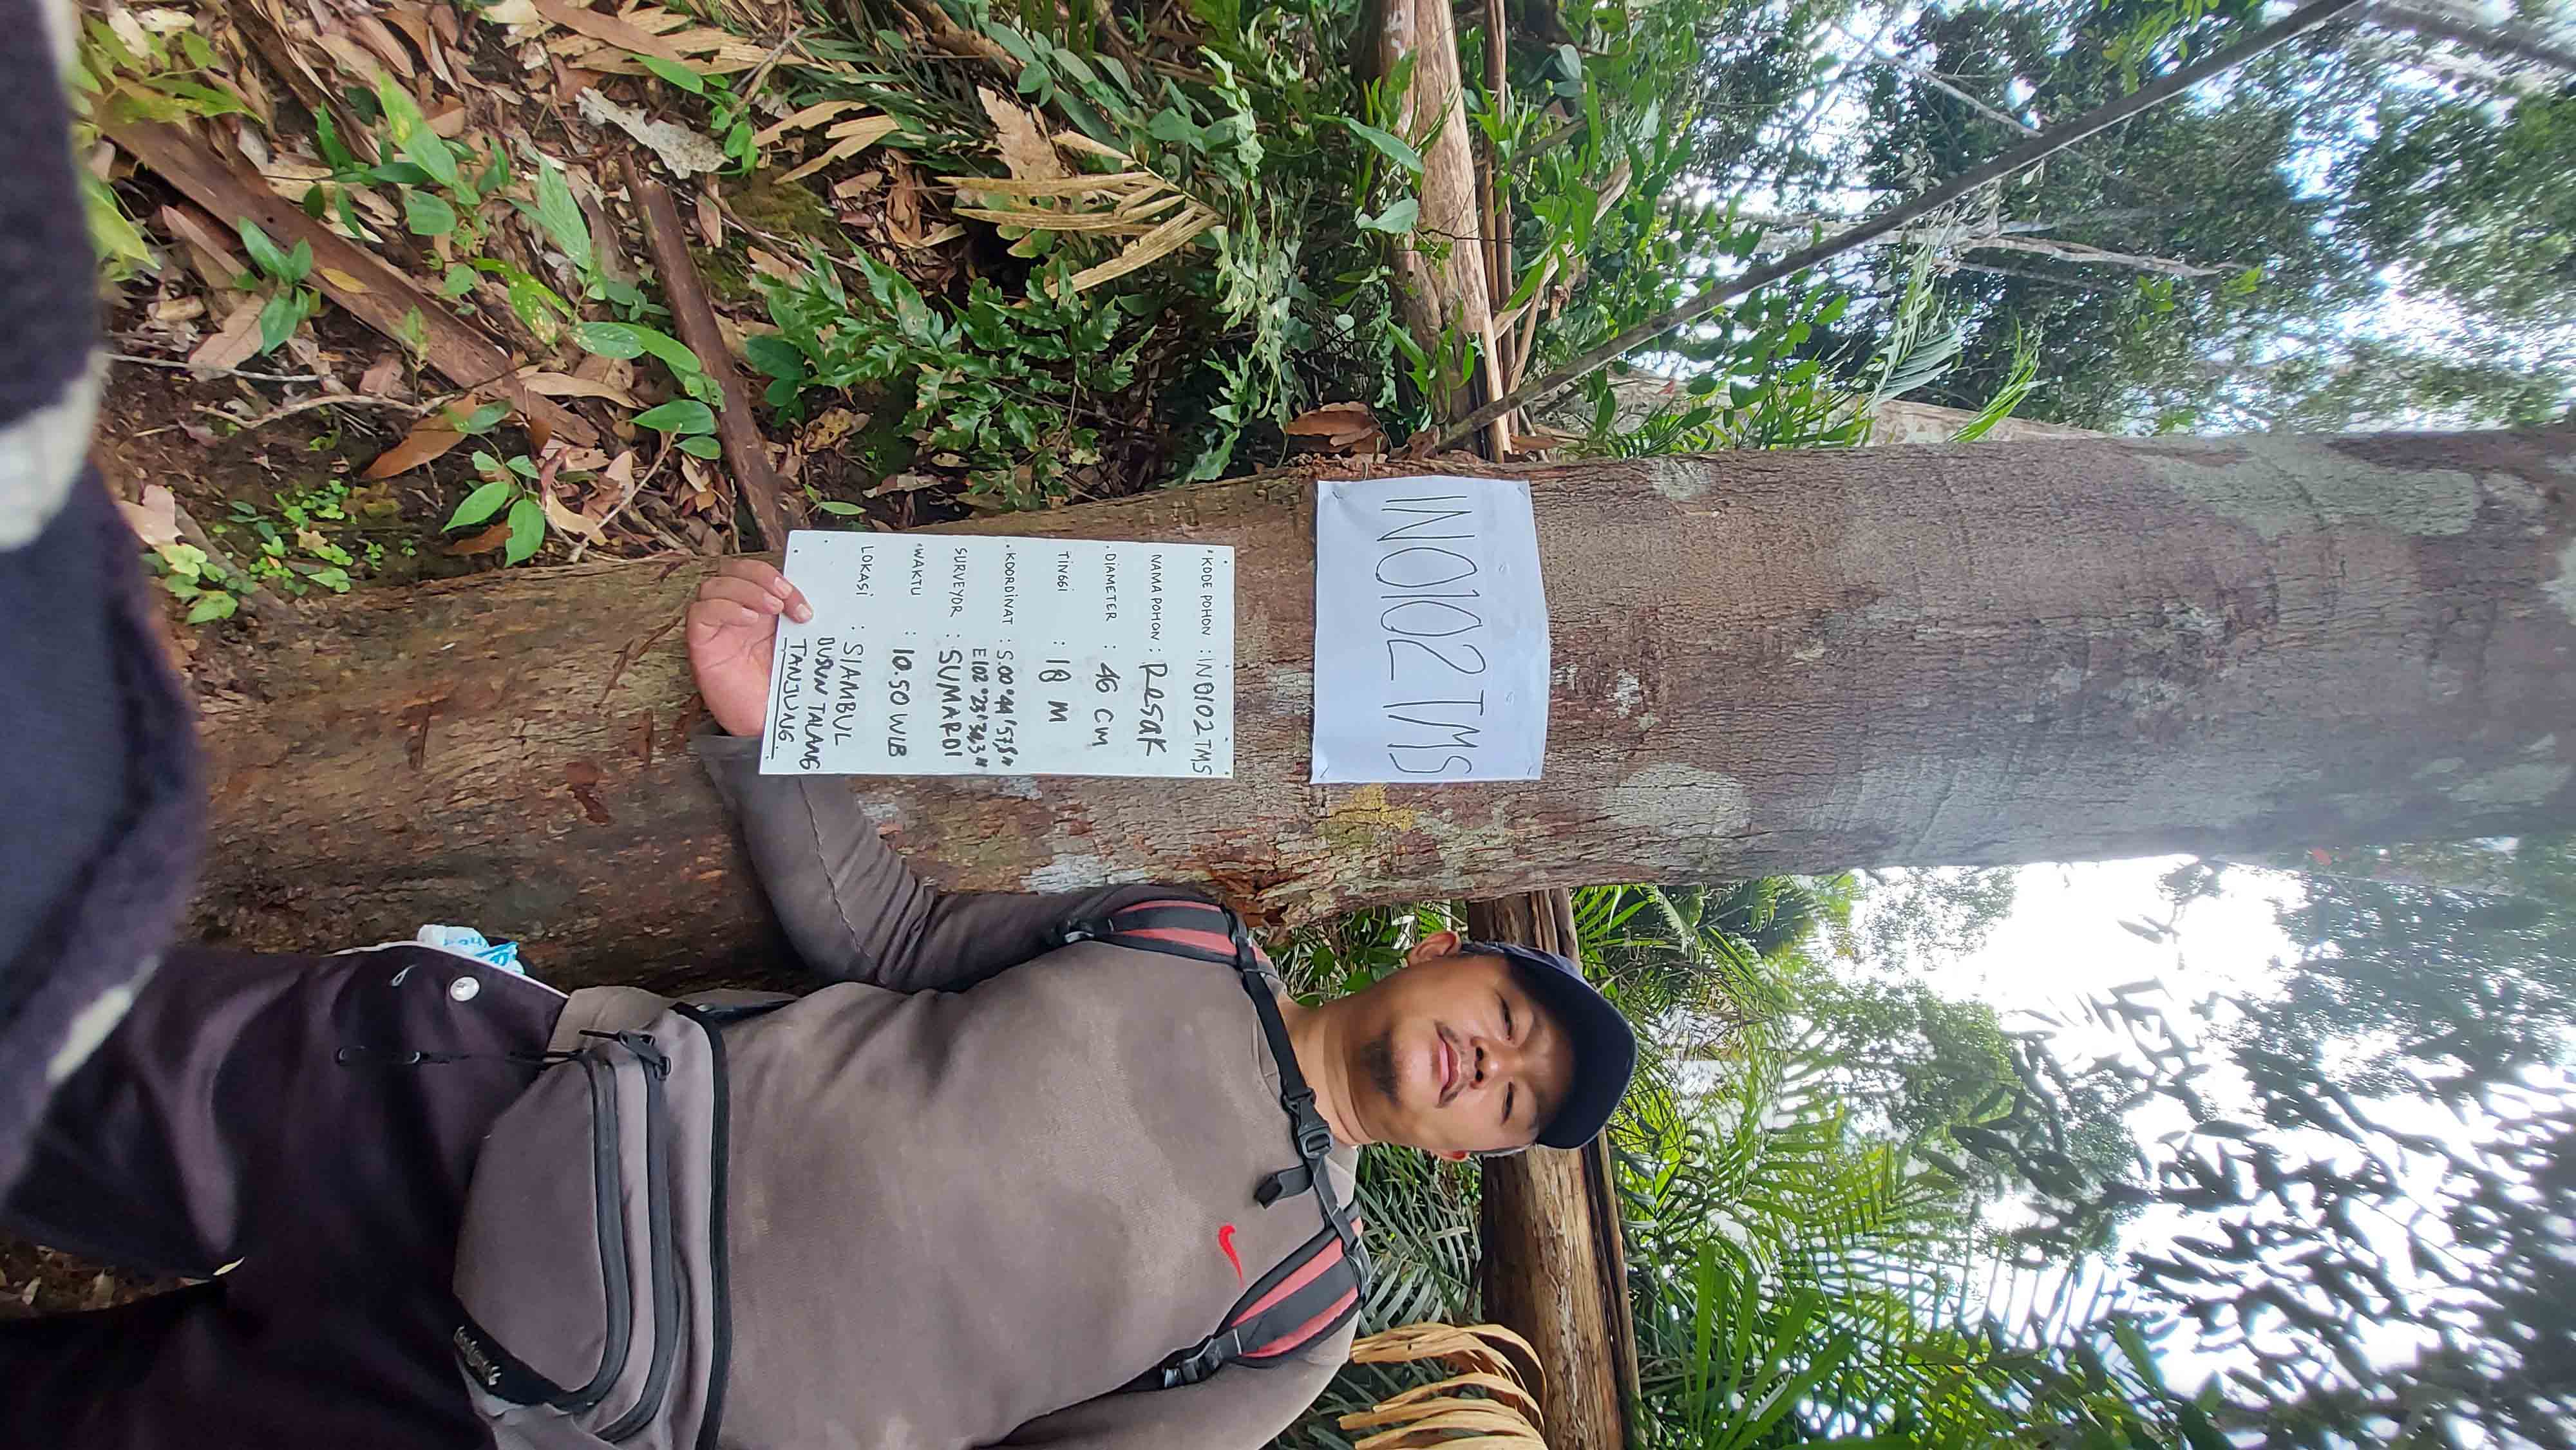 IN0102 TMS
KODE POHON : IN0102 TMS
NAMA POHON : Resak
DIAMETER : 46 CM
TINGGI : 18 M
KOORDINAT : S.00°44'57,8"
E102°23'34,3"
SURVEYOR : SUMARDI
WAKTU : 10.50 WIB
LOKASI : SIAMBUL
DUSUN TALANG
TANJUNG.